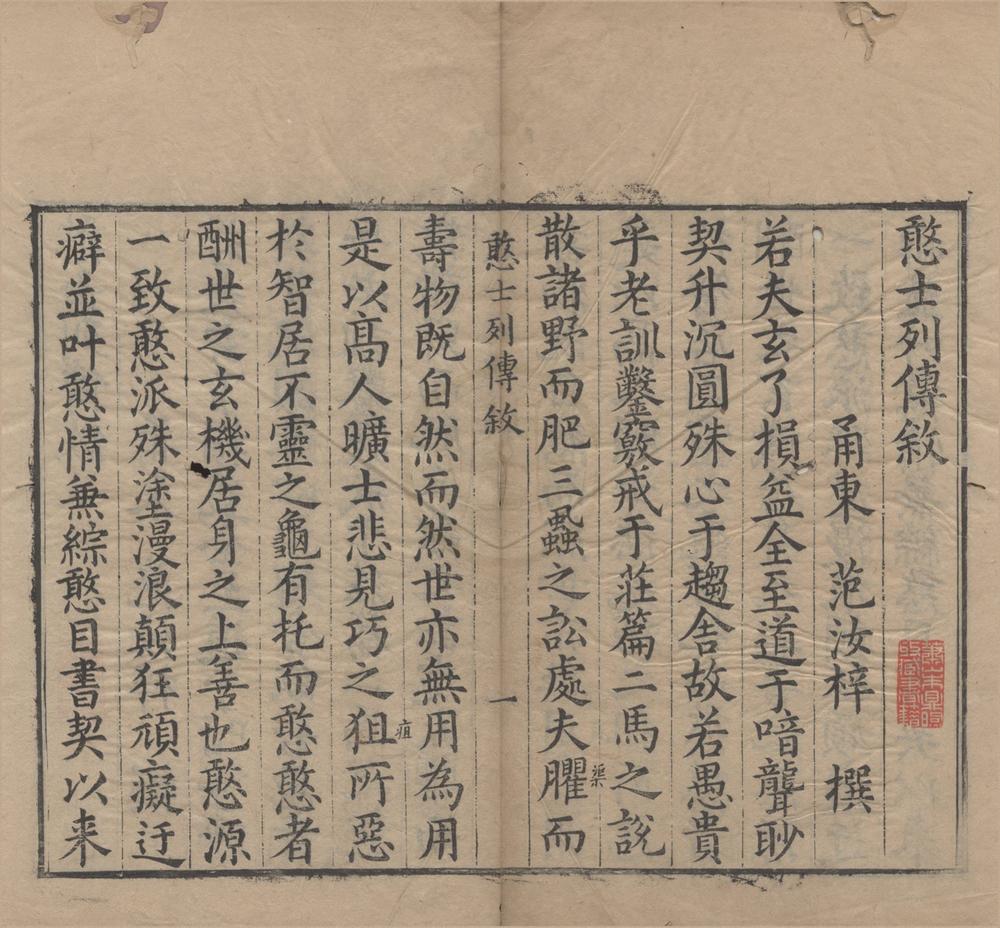 憨士列傳敘
甬東 范汝梓 撰
若夫玄了損益全至道于喑聾眇
契升沉圓殊心于趨舍故若愚貴
乎老訓鑿竅戒于莊篇二馬之說
散諸野而肥三蝨之訟處夫臞渠而
憨士列傳敘 一
壽物既自然而然世亦無用為用
是以髙人曠士悲見巧之狙疽所惡
於智居不靈之龜有托而憨憨者
酬世之玄機居身之上善也憨源
一致憨派殊塗漫浪顛狂頑癡迂
癖並叶憨情兼綜憨目書契以来